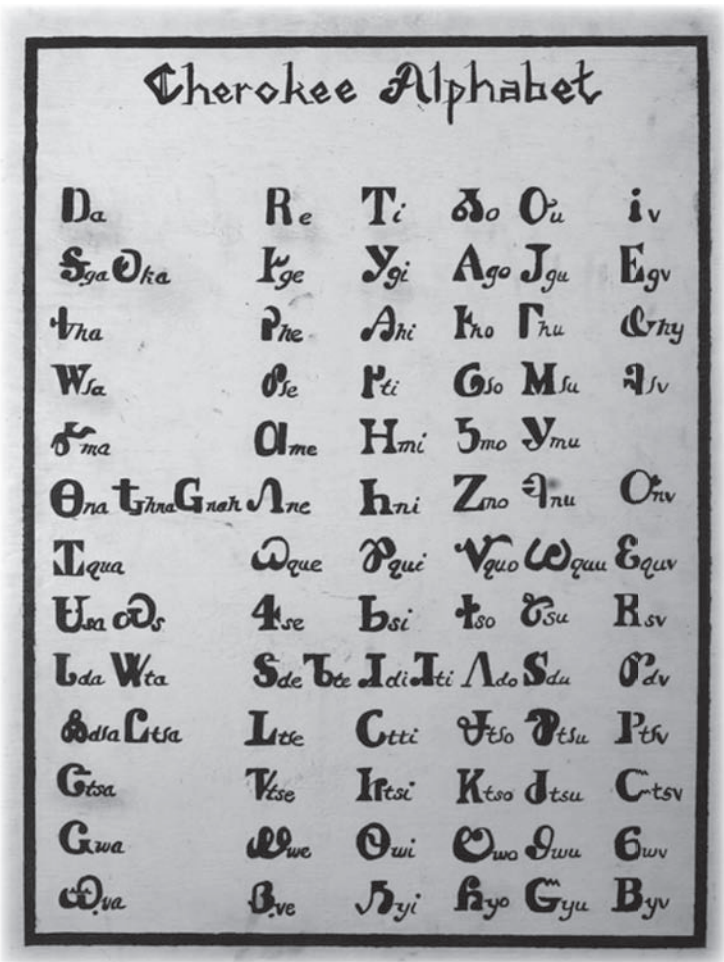 Cherokee Alphabet
Ꭰa Ꭱe Ꭲi Ꭳo Ꭴu Ꭵv
Ꭶga Ꭷka Ꭸge Ꭹgi Ꭺgo Ꭻgu Ꭼgv
Ꭽha Ꭾhe Ꭿhi Ꮀho Ꮁhu Ꮂhy
Ꮃsa Ꮄse Ꮅti Ꮆso Ꮇsu Ꮈsv
Ꮉma Ꮊme Ꮋmi Ꮌmo Ꮍmu
Ꮎna Ꮏhna Ꮐnah Ꮑne Ꮒni Ꮓno Ꮔnu Ꮕnv
Ꮖqua Ꮗque Ꮘqui Ꮙquo Ꮚquu Ꮛquv
Ꮜsa Ꮝs Ꮞse Ꮟsi Ꮠso Ꮡsu Ꮢsv
Ꮣda Ꮤta Ꮥde Ꮦte Ꮧdi Ꮨti Ꮩdo Ꮪdu Ꮫdv
Ꮬdsa Ꮭtsa Ꮮtse Ꮯtti Ꮰtso Ꮱtsu Ꮲtsv
Ꮳtsa Ꮴtse Ꮵtsi Ꮶtso Ꮷtsu Ꮸtsv
Ꮹwa Ꮺwe Ꮻwi Ꮼwo Ꮽwu Ꮾwv
Ꮿva Ᏸve Ᏹyi Ᏺyo Ᏻyu Ᏼyv